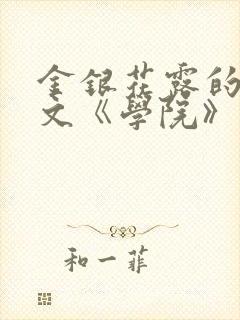 金銀花露的
文《學院》
和一菲